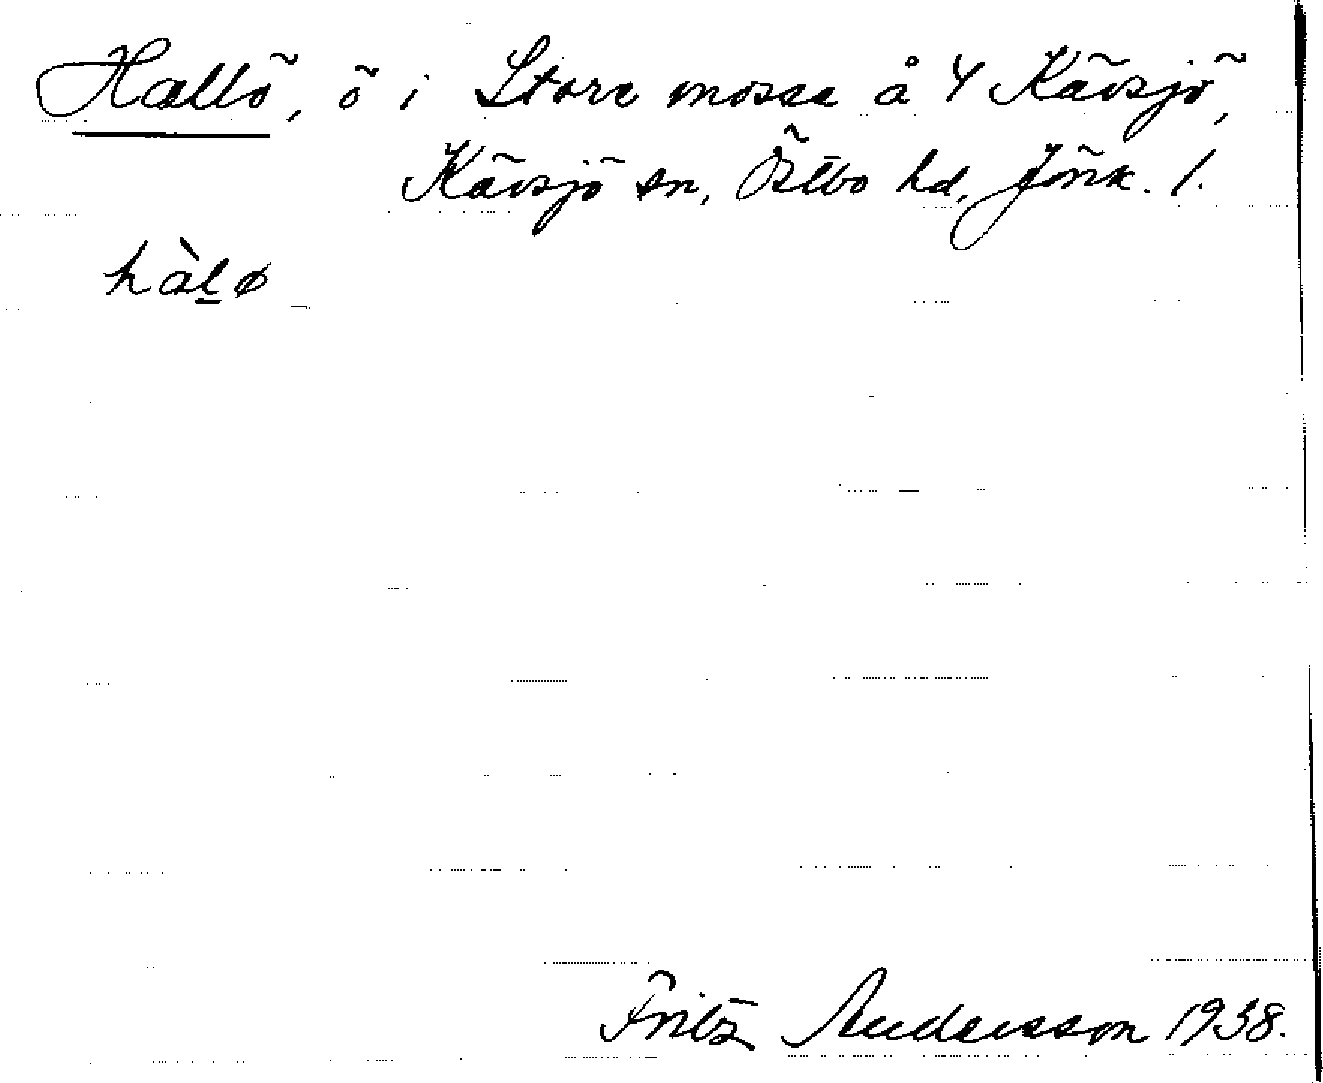 Hallö, ö i Store mosse å 4 Kävsjö,
Kävsjö sn, Östbo hd, Jönk. l.
hàl̲ø
Fritz Andersson 1938.